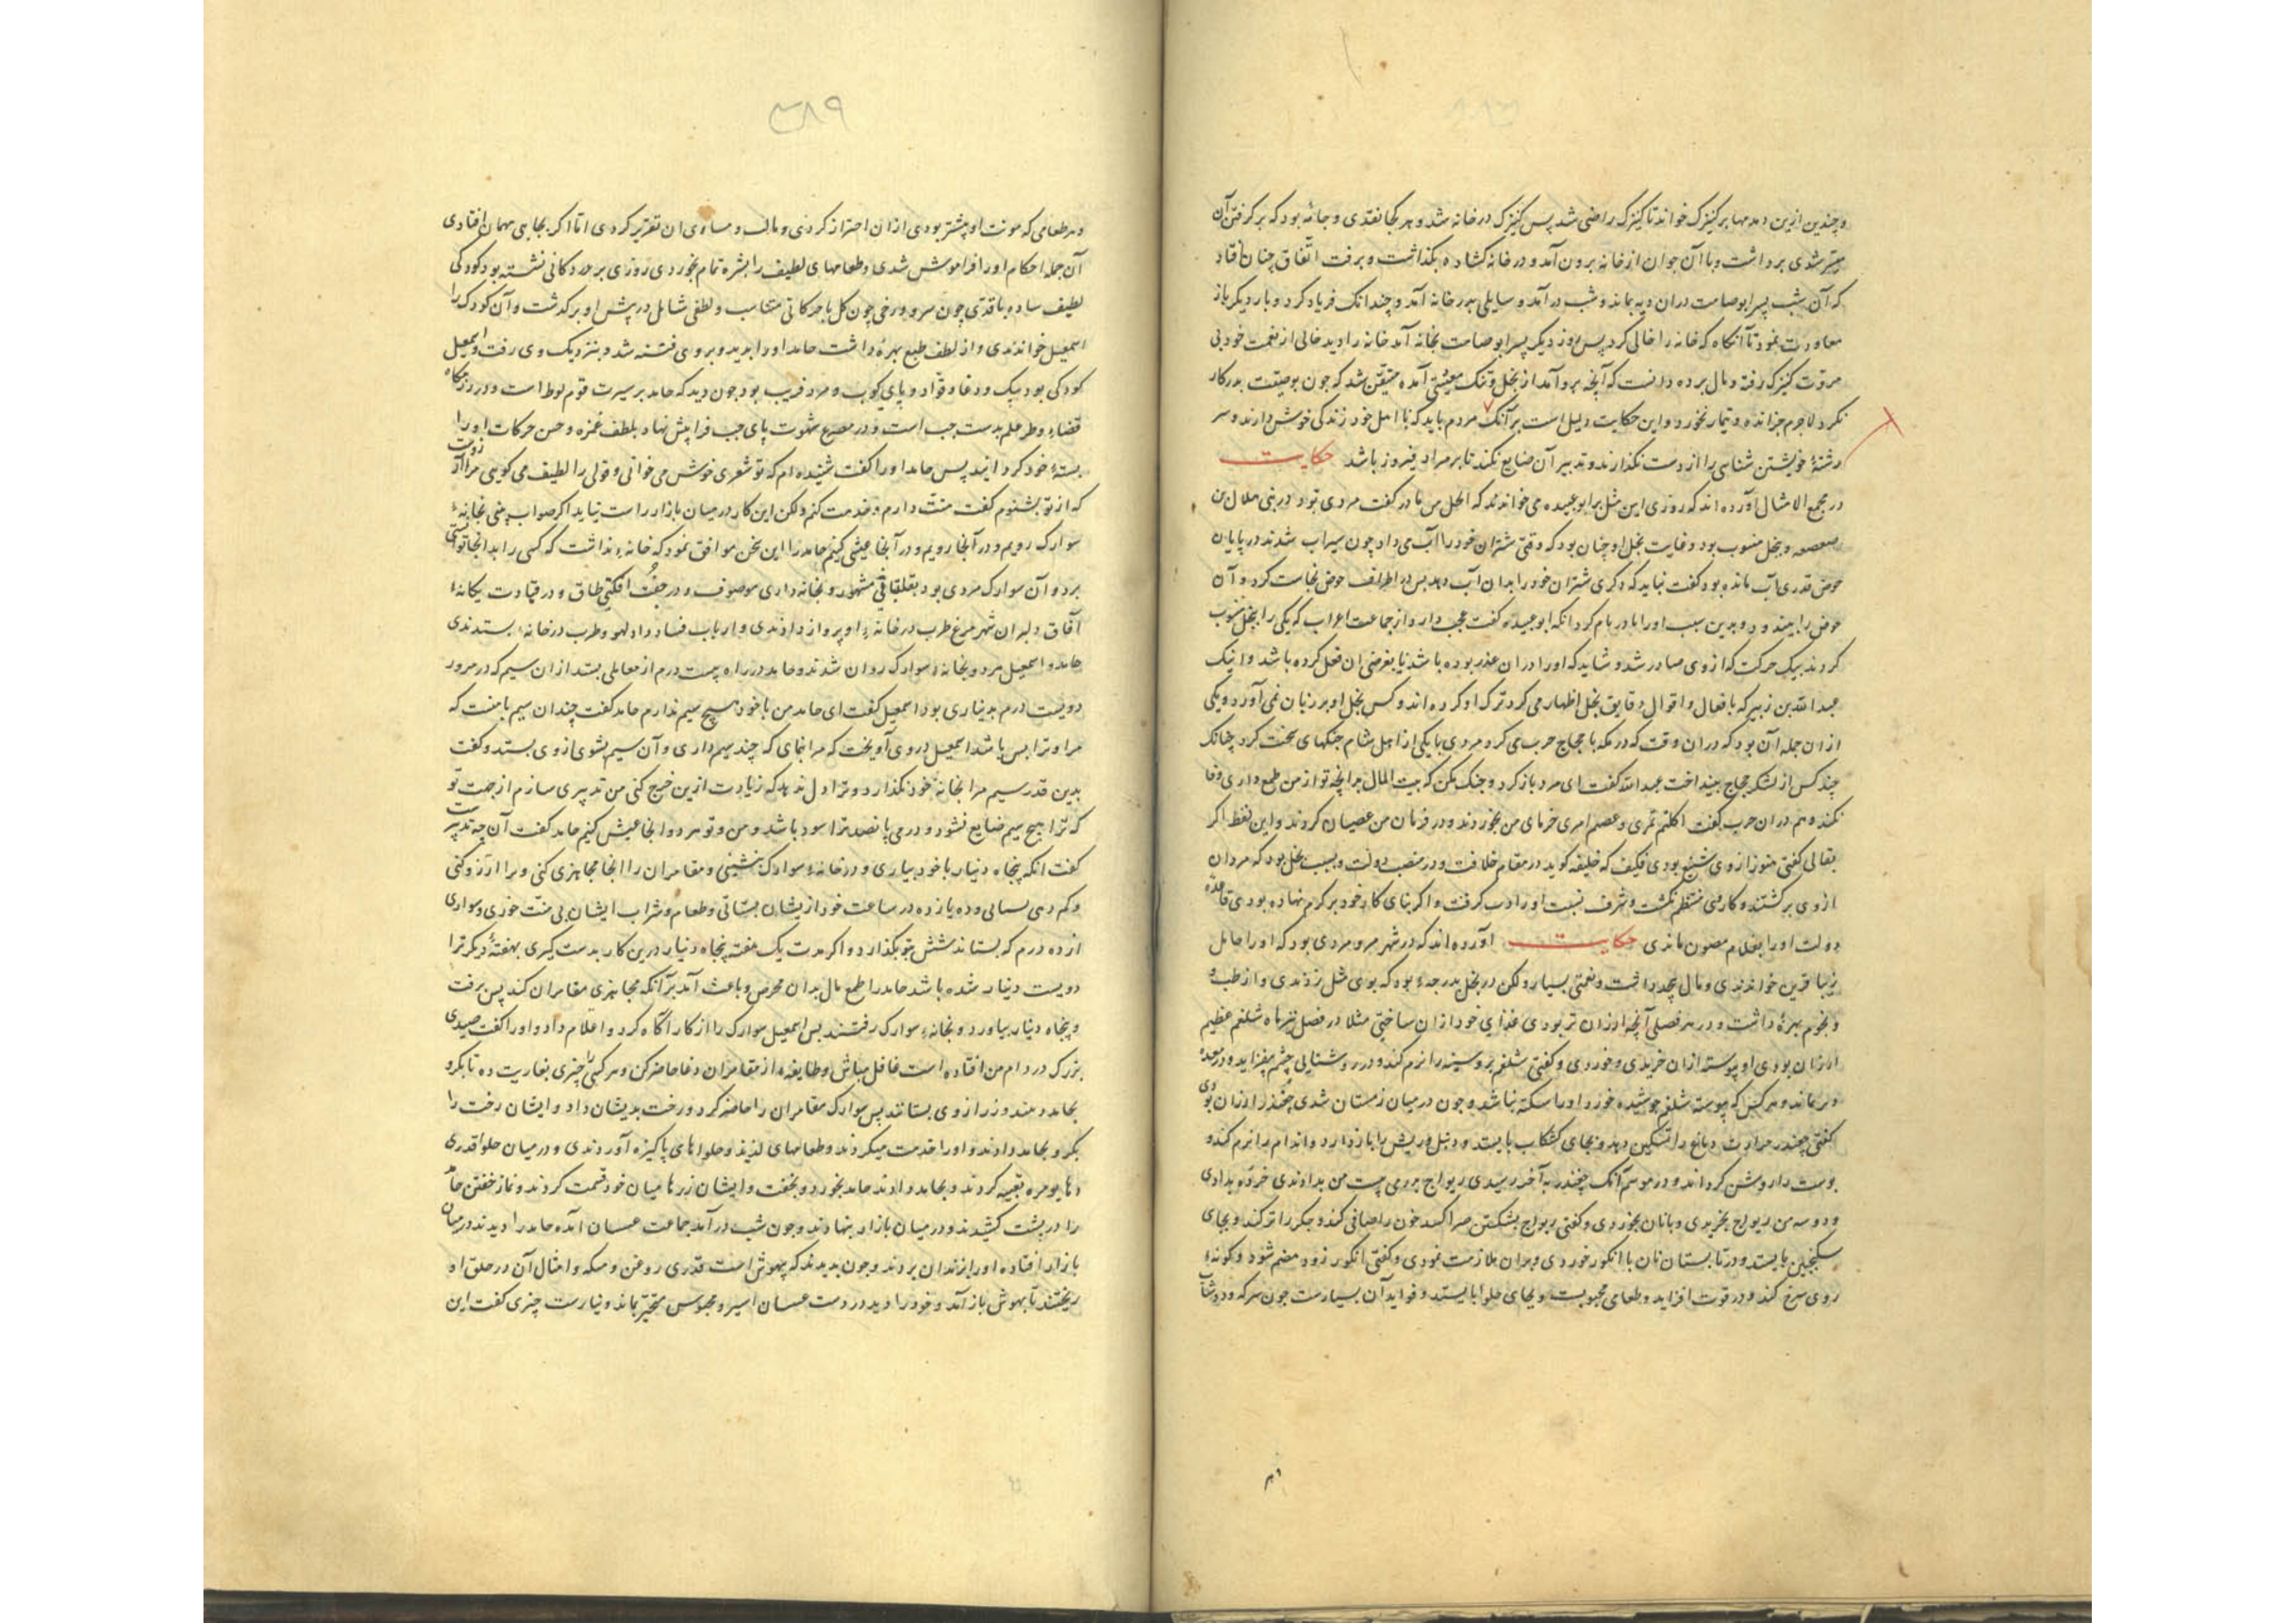 و چندین ازین دمدمها بر کنیزک خواند تا کنیزک راضی شد پس کنیزک در خانه شد و هر کجا نقدی و جامهٔ بود که بر گرفتن آن
میسر شدی برداشت و با آن جوان از خانه برون آمد و در خانه کشاده بگذاشت و برفت اتفاق چنان افتاد
که آن شب پسر ابوصامت دران دیه بماند و شب در آمد و سایلی بدر خانه آمد و چندانک فریاد کرد و بار دیگر باز
معاودت نمود تا آنگاه که خانه را خالی کرد پس روز دیگر پسر ابوصامت بخانه آمد خانه را دید خالی از نعمت خود بی
مروت کنیزک رفته و مال برده دانست که آنچه برو آمد از بخل و تنک معیشتی آمده متیقن شد که چون بوصیت پدر کار
نکرد لاجرم جز انده و تیمار نخورد و این حکایت دلیل است بر آنک مردم باید که با اهل خود زندگی خوش دارند و سر
رشتهٔ خویشتن شناسی را از دست نگذارند و تدبیر آن ضایع نکنند تا بر مراد فیروز باشد حکایت
در مجمع الامثال آورده اند که روزی این مثل بر ابوعبیده می خواندند که ابخل من مادر گفت مردی بود در بنی هلال بن
صعصعه و بخل منسوب بود و غایت بخل او چنان بود که وقتی شتران خود را آب می داد چون سیراب شدند در پایان
حوض قدری آب مانده بود گفت نباید که دگری شتران خود را بدان آب دهد پس در اطراف حوض نجاست کرد و آن
حوض را بیندود و بدین سبب او را مادر نام کردند آنکه ابوعبیده گفت عجب دارد از جماعت اعراب که یکی را ببخل منسوب
کردند بیک حرکت که از وی صادر شد و شاید که او را دران عذر بوده باشد یا بغرضی ان فعل کرده باشد و اینک
عبد الله بن زبیر که بافعال و اقوال دقایق بخل اظهار می کرد ترک او کرده اند و کس بخل او بر زبان نمی آورد و یکی
از ان جمله آن بود که دران وقت که در مکه با حجاج حرب می کرد مردی با یکی از اهل شام جنگهای سخت کرد چنانک
چند کس از لشکر حجاج بینداخت عبد الله گفت ای مرد باز گرد و جنگ مکن که بیت المال برانچه تو از من طمع داری وفا
نکند و هم دران حرب گفت اکلتم تمری و عصیتم امری خرمای من بخوردند و در فرمان من عصیان کردند و این لفظ اگر
بقالی گفتی هنوز از وی شنیع بودی فکیف که خلیفه گوید در مقام خلافت و در منصب دولت و بسبب بخل بود که مردان
از وی برگشتند و کار وی منتظم نگشت و شرف نسبت او را دب گرفت و اگر بنای کار خود بر کرم نهاده بودی قاعدهٔ
دولت او را بغلام مصون ماندی حکایت آورده اند که در شهر مرو مردی بود که او را حامل
زیبا قرین خواندندی و مال بیحد داشت و نعمتی بسیار ولکن در بخل بدرجهٔ بود که بوی مثل زدندی و از طب و
و نجوم بهرهٔ داشت و در هر فصلی آنچه ارزان تر بودی غذای خود ازان ساختی مثلا در فصل تیرماه شلغم عظیم
ارزان بودی او پیوسته ازان خریدی و خوردی و گفتی شلغم بر و سینه را نرم کند و در روشنایی چشم بیفزاید و در معدهٔ
دیر بماند و هر کس که پیوسته شلغم جوشیده خورد او را سکته نباشد و چون درمیان زمستان شدی چغندر ارزان بودی
گفتی چغندر حرارت دماغ را تسکین دهد و بجای کشکاب بایستد و دنبل و ریش را باز دارد و اندام را نرم کند و
پوست را روشن گرداند و در موسم آنک چغندر به آخر رسیدی ریواج بدرمی بیست من بدادندی خرده بدادی
و دو سه من ریواج بخریدی و با نان بخوردی و گفتی ریواج بشکستن صفرا کند خون را صافی کند و جگر را تر کند و بجای
سکنجبین بایستد و در تابستان نان با انگور خوردی و بران ملازمت نمودی و گفتی انگور زود هضم شود و گونهٔ
روی سرخ کند و در قوت افزاید و طعامی محبوبست و بجای حلوا بایستد و فواید آن بسیارست چون سرکه و دوشاب
۳۸۹
و هر طعامی که مونت او بیشتر بودی ازان احتراز کردی و مثالب و مساوی ان تقریر کردی اما اگر بجایی مهمان افتادی
آن جمله احکام او را فراموش شدی و طعامهای لطیف را بشره تمام بخوردی روزی بر در دکانی نشسته بود کودکی
لطیف ساده با قدی چون سرو و رخی چون گل با حرکاتی متناسب و لطفی شامل در پیش او بر گذشت و آن کودک را
اسمعیل خواندندی و از لطف طبع بهرهٔ داشت حامد او را بدید و بر وی فتنه شد و بنزدیک وی رفت و اسمعیل
کودکی بود بیک و دغا و قواد و پای کوب و مرد فریب بود چون دید که حامد بر سیرت قوم لوط است و در رزمگاه
قضاء وطر علم بدست جب است و در مصرع شهوت پای جب فرا پیش نهاد بلطف غمزه و حسن حرکات او را
بستهٔ خود گردانید پس حامد او را گفت شنیده ام که تو شعری خوش می خوانی و قولی را لطیف می گویی مرا آرزوست
که از تو بشنوم گفت منت دارم و خدمت کنم ولکن این کار درمیان بازار راست نیاید اگر صواب بینی بخانهٔ
سوارک رویم و در آنجا رویم و در آنجا عیشی کنیم حامد را این سخن موافق نمود که خانهٔ نداشت که کسی را بدانجا تواند
برد و آن سوارک مردی بود بقلتبانی مشهور و بخانه داری موصوف و در جفت افکنی طاق و در قیادت یگانهٔ
آفاق دلبران شهر مرغ طرب در خانهٔ او پرواز دادندی و ارباب فساد داد لهو و طرب در خانهٔ بستدندی
حامد و اسمعیل هر دو بخانهٔ سوارک روان شدند و حامد در راه بیست درم از معاملی بستد ازان سیم که در مرو
دویست درم بدیناری بود اسمعیل گفت ای حامد من با خود هیچ سیم ندارم حامد گفت چندان سیم با منست که
مرا و ترا بس باشد اسمعیل در وی آویخت که مرا بنمای که چند سیم داری و آن سیم بشوی از وی بستد و گفت
بدین قدر سیم مرا بخانهٔ خود نگذارد و ترا دل ندهد که زیادت ازین خرج کنی من تدبیری سازم از جهت تو
که ترا هیچ سیم ضایع نشود و درمی پانصد ترا سود باشد و من و تو هر دو انجا عیش کنیم حامد گفت آن چه تدبیرست
گفت انکه پنجاه دینار با خود بیاری و در خانهٔ سوارک بنشینی و مقامران را انجا مجاهزی کنی و مرا آرزو کنی
و کم دهی بستانی و ده یازده در ساعت خود ازیشان بستانی و طعام و شراب ایشان بی منت خوری و سوارک
از ده درم که بستاند شش بتو بگذارد و اگر مدت یک هفته پنجاه دینار درین کار بدست گیری بهفتهٔ دیگر ترا
دویست دینار شده باشد حامد را طمع مال بدان محرض و باعث آمد بر آنکه مجاهزی مقامران کند پس برفت
و پنجاه دینار بیاورد و بخانهٔ سوارک رفتند پس اسمعیل سوارک را از کار آگاه کرد و اعلام داد و او را گفت صیدی
بزرگ در دام من افتاده است غافل مباش و طایفهٔ از مقامران دغا حاضر کن و هر کسی را چیزی بعاریت ده تا بگرو
بحامد دهند و زر از وی بستانند پس سوارک مقامران را حاضر کرد و رخت بدیشان داد و ایشان رخت را
بگرو بحامد دادند و او را خدمت میکردند و طعامهای لذیذ و حلواهای پاکیزه آوردندی و درمیان حلوا قدری
داهویره تعبیه کردند و بحامد دادند حامد بخورد و بخفت و ایشان زرها میان خود قسمت کردند و نماز خفتن حامد
را در پشت کشیدند و درمیان بازار بنهادند و چون شب در آمد جماعت عسسان آمده حامد را دیدند درمیان
بازار افتاده او را بزندان بردند و چون بدیدند که بیهوش است قدری روغن و مسکه و امثال آن در حلق او
ریختند تا بهوش باز آمد و خود را دید در دست عسسان اسیر و محبوس متحیر بماند و نیارست چیزی گفت این